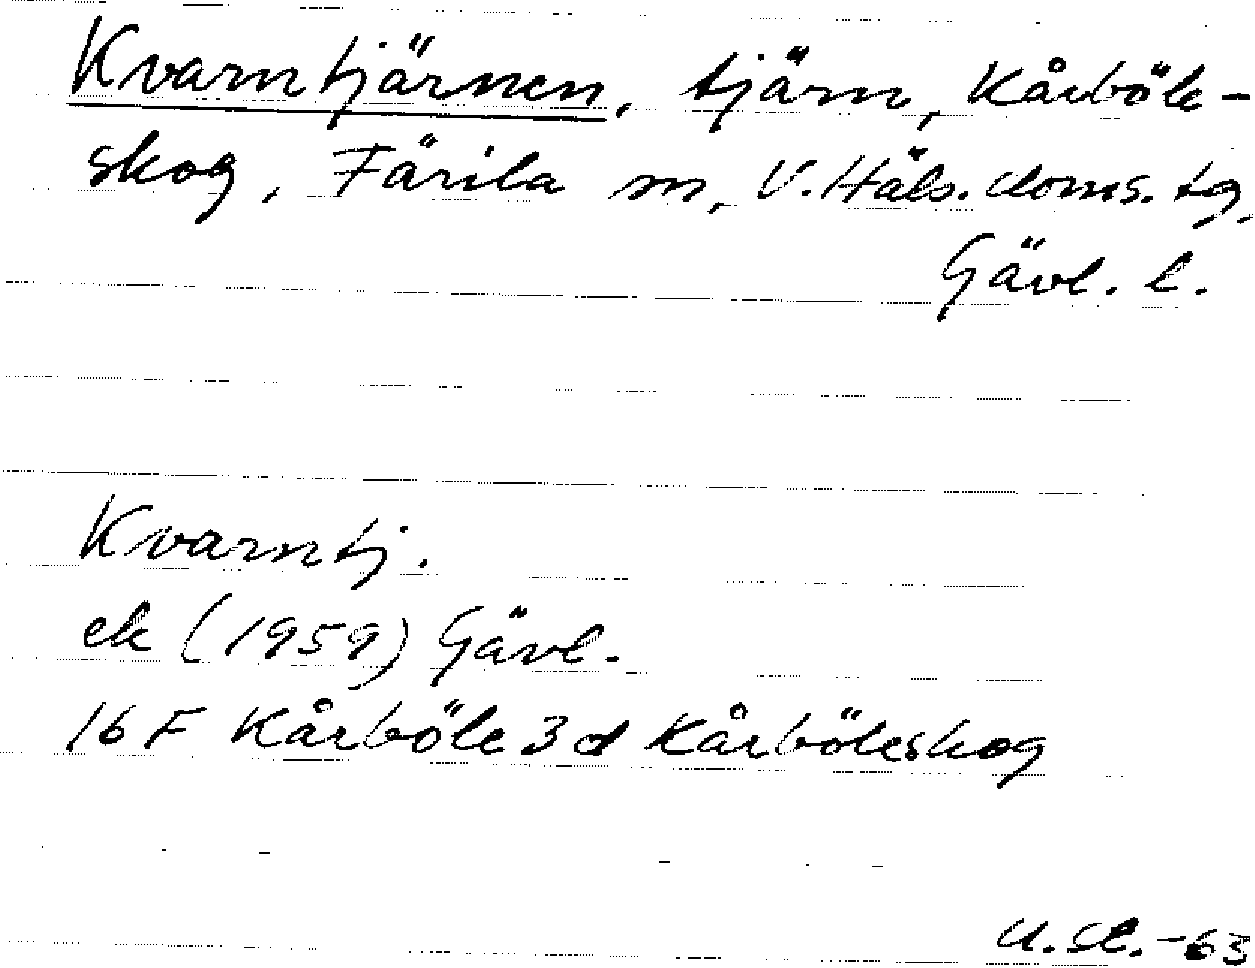 Kvarntjärnen, tjärn, Kårböle-
skog, Färila sn, V. Häls. doms. tg,
Gävl. l.
Kvarntj.
ek (1959) Gävl.
16 F Kårböle 3 d Kårböleskog
U. Sl. -63